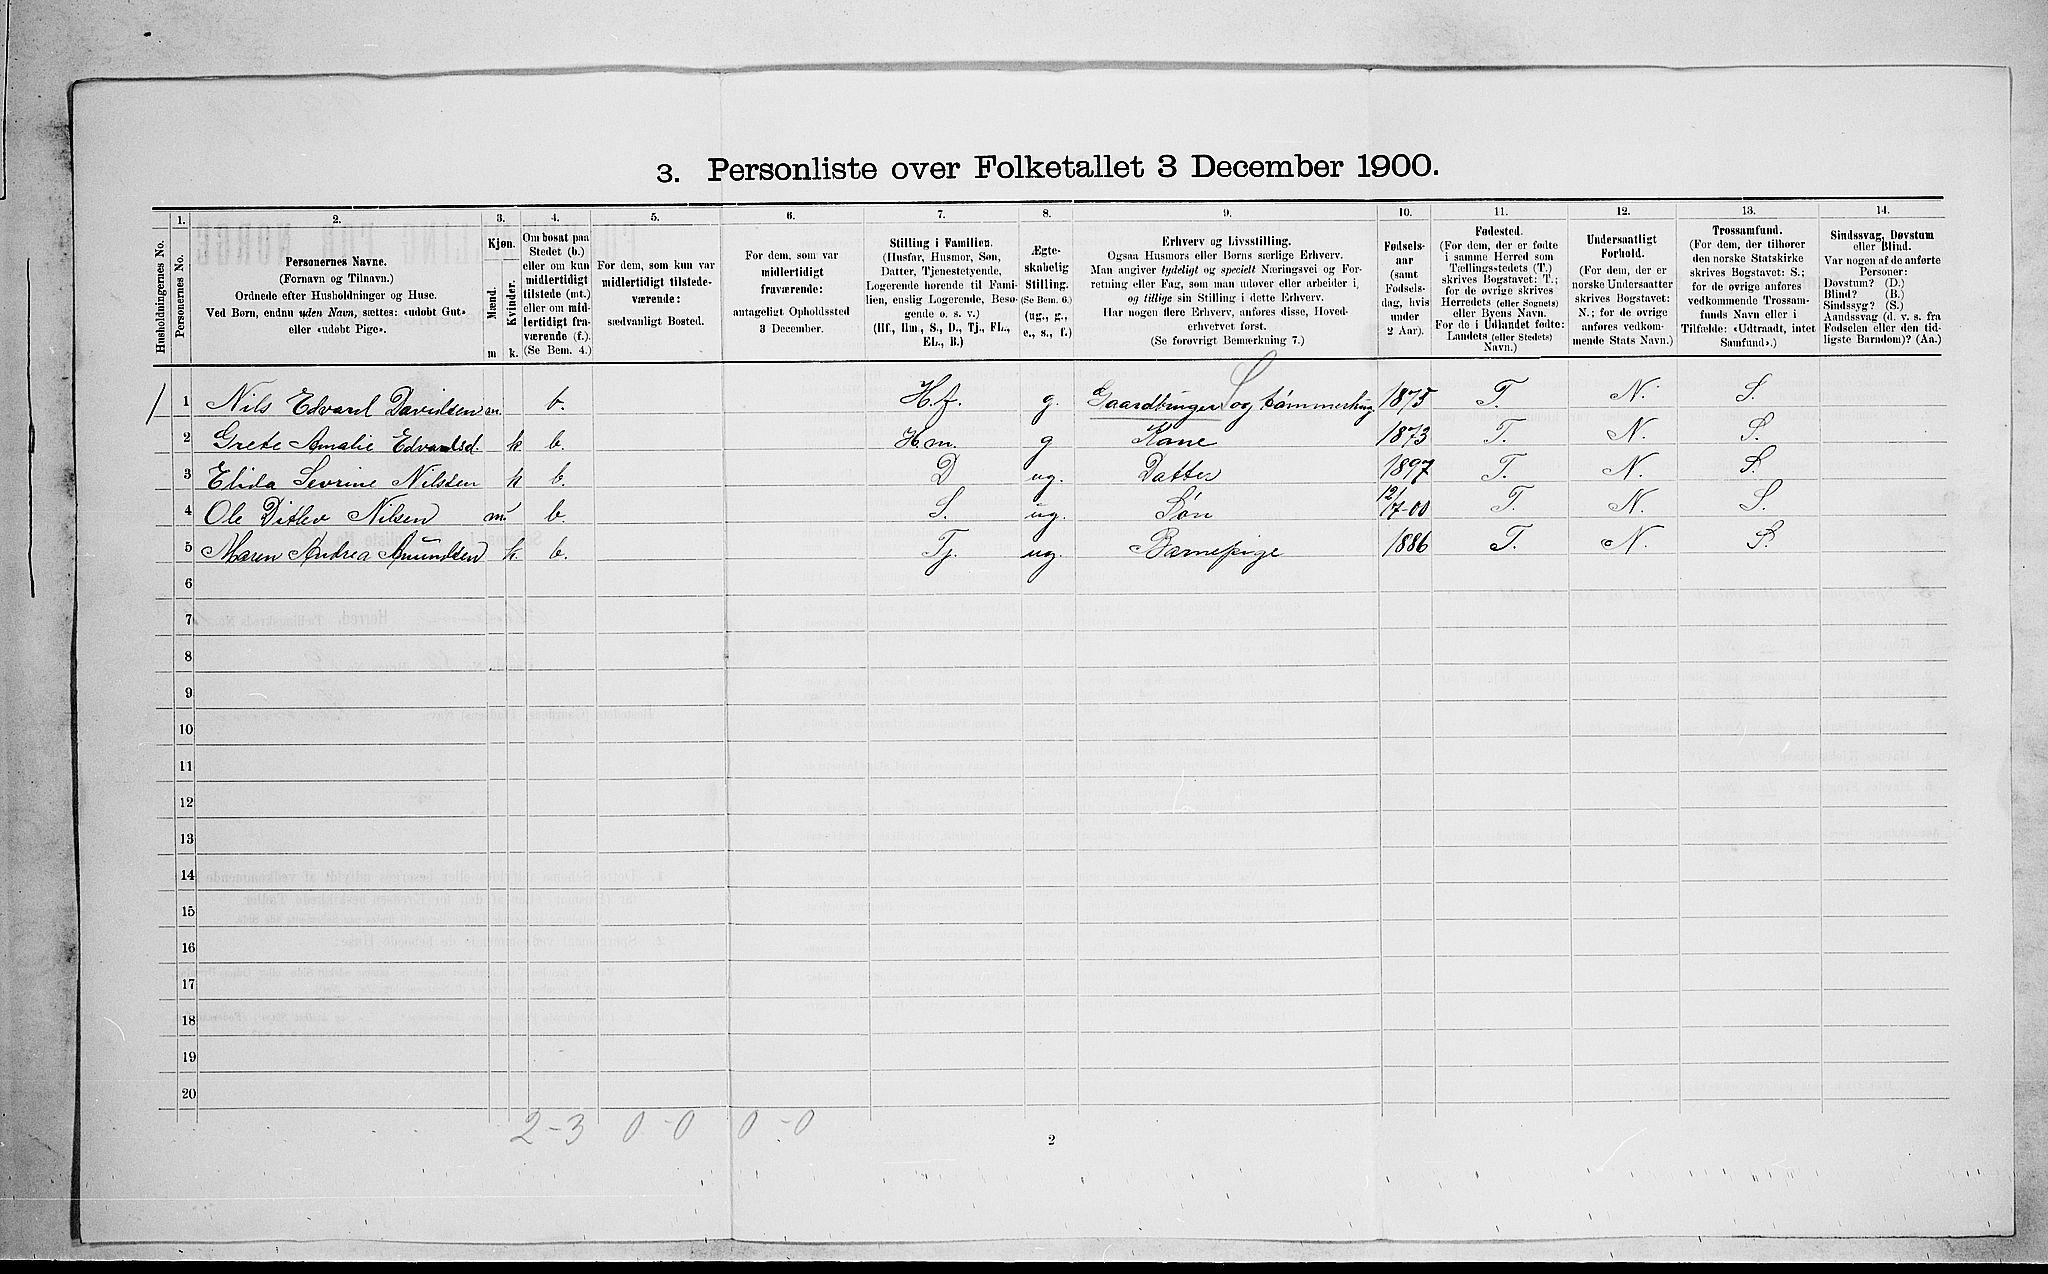 3. Personliste over Folketallet 3 December 1900.
Husholdningernes No.
1.
Personernes No.
2.
Personernes Navne.
(Fornavn og Tilnavn.)
Ordnede efter Husholdninger og Huse.
Ved Børn, endnu uden Navn, sættes: «udøbt Gut»
eller «udøbt Pige».
3.
Kjøn.
Mænd.
Kvinder.
m
k.
4.
Om bosat paa
Stedet (b.)
eller om kun
midlertidigt
tilstede (mt.)
eller om mid-
lertidigt fra-
værende (f.).
(Se Bem. 4.)
5.
For dem, som kun var
midlertidigt tilstede-
værende:
sædvanligt Bosted.
6.
For dem, som var
midlertidigt
fraværende:
antageligt Opholdssted
3 December.
7.
Stilling i Familien.
(Husfar, Husmor, Søn,
Datter, Tjenestetyende,
Logerende hørende til Fami-
lien, enslig Logerende, Besø-
gende o. s. v.)
(Hf., Hm., S., D., Tj., FL.,
EL., B.)
8.
Ægte-
skabelig
Stilling.
(Se Bem. 6.)
(ug., g.,
e., s., f.)
9.
Erhverv og Livsstilling.
Ogsaa Husmors eller Børns særlige Erhverv.
Man angiver tydeligt og specielt Næringsvei og For-
retning eller Fag, som man udøver eller arbeider i,
og tillige sin Stilling i dette Erhverv.
Har nogen flere Erhverv, anføres disse, Hoved-
erhvervet først.
(Se forøvrigt Bemærkning 7.)
10.
Fødsels-
aar
(samt
Fødsels-
dag, hvis
under
2 Aar).
11.
Fødested.
(For dem, der er fødte
i samme Herred som
Tællingsstedets (T.)
skrives Bogstavet: T.;
for de øvrige skrives
Herredets (eller Sognets)
eller Byens Navn.
For de i Udlandet fødte:
Landets (eller Stedets)
Navn.)
12.
Undersaatligt
Forhold.
(For dem, der er
norske Undersaatter
skrives Bogstavet:
N.; for de øvrige
anføres vedkom-
mende Stats Navn.)
13.
Trossamfund.
(For dem, der tilhører
den norske Statskirke
skrives Bogstavet: S.;
for de øvrige anføres
vedkommende Trossam-
funds Navn eller i
Tilfælde: «Udtraadt, intet
Samfund».)
14.
Sindssvag, Døvstum
eller Blind.
Var nogen af de anførte
Personer:
Døvstum? (D.)
Blind? (B.)
Sindssyg? (S.)
Aandssvag (d. v. s. fra
Fødselen eller den tid-
ligste Barndom)? (Aa.)
1 Nils Edvard Davidsen m. b. Hf. g. Gaardbruger og tømmerhug. 1875 T. N. S.
2 Grete Amalie Edvardsd. k b. Hm. g Kone 1873 T. N. S.
3 Elida Sevrine Nilsen k b. D ug. Datter 1897 T. N. S.
4 Ole Ditlev Nilsen m. b. S. ug. Søn 12/7-00 T. N. S.
5 Maren Andrea Amundsen k b. Tj. ug. Barnepige 1886 T. N. S.
6
7
8
9
10
11
12
13
14
15
16
17
18
19
20
2-3 0-0 0-0
2